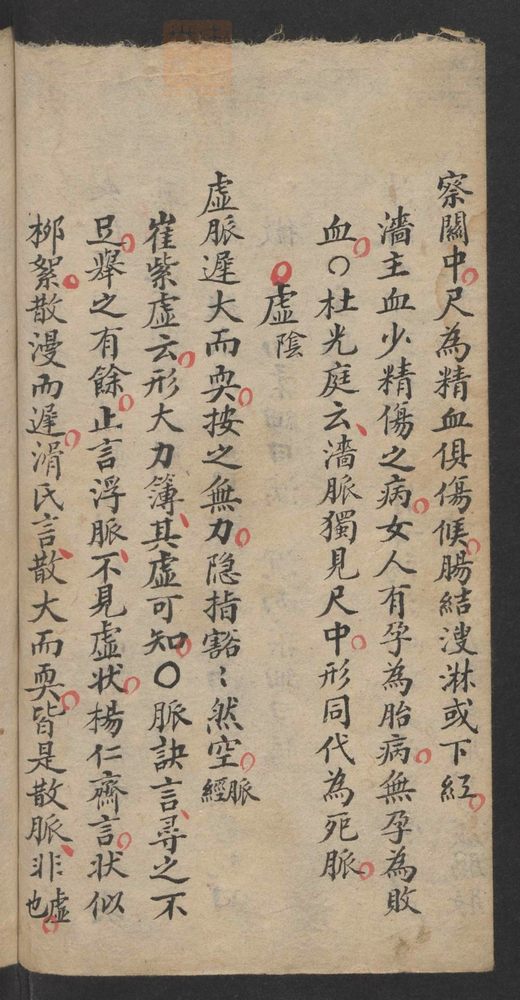 察關中尺為精血俱傷候腸結溲淋或下紅
濇主血少精傷之病女人有孕為胎病無孕為敗
血〇杜光庭云濇脈獨見尺中形同代為死脈
虛陰
虛脈遲大而耎按之無力隐指豁〻然空脈經
崔紫虛云形大力簿其虛可知〇脈訣言尋之不
足舉之有餘止言浮脈不見虛狀楊仁齋言狀似
柳絮散漫而遲滑氏言散大而耎皆是散脈非虛也